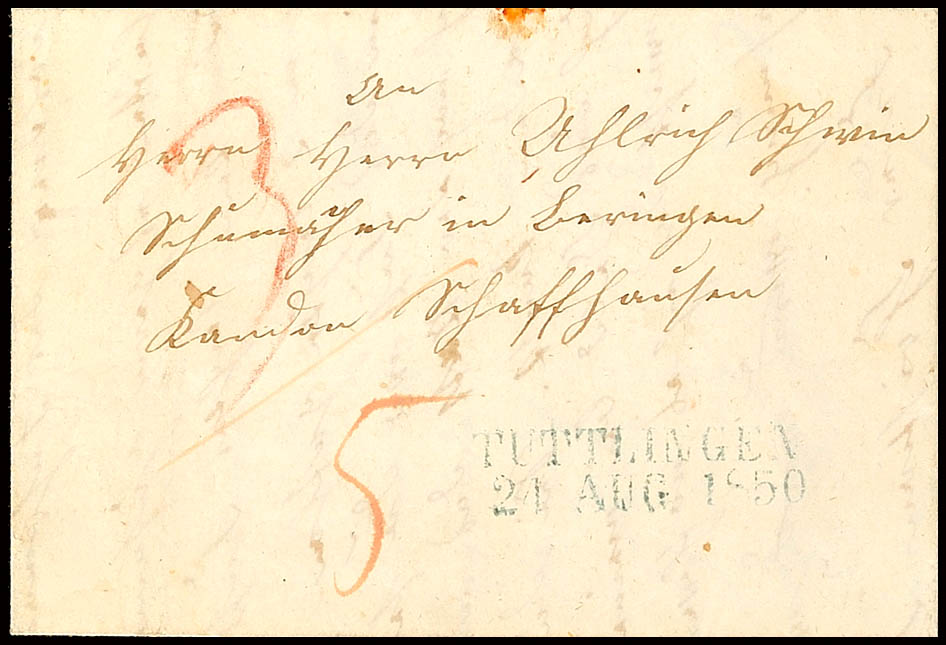 An
Herrn Herrn Uhlrich Schwin
Schumacher in Beringen
Kandon Schaffhausen
3
5
TUTTLINGEN
24 AUG 1850